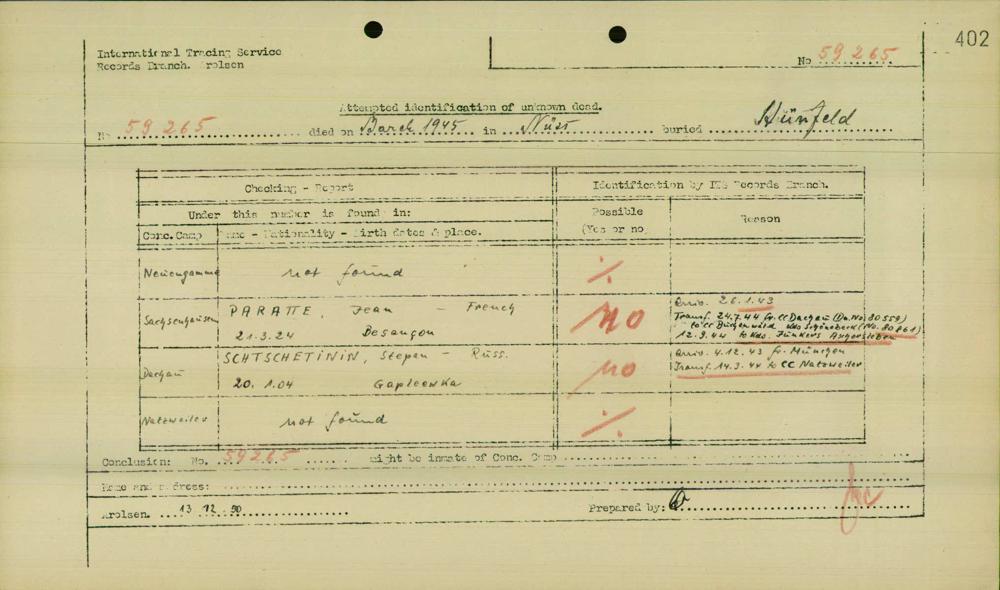 402
International Tracing Service
Records Branch. Arolsen
No 59 265
Attempted identification of unknown dead.
No 59 265 died on March 1945 in Nüst buried Hünfeld
Checking - Report
Identification by ITS Records Branch.
Under this number is found in:
Possible
(Yes or no)
Reason
Conc. Camp
Name - Nationality - Birth dates & place.
Neuengamme not found ·/.
Sachsenhausen PARATTE, Jean - French
21.3.24 Besançon
NO
Arriv. 26.1.43
Transf. 24.7.44 fr. CC Dachau (Da.No. 80559)
to CC Buchenwald Kdo Schönebeck (No. 80861)
12.9.44 to Kdo. Junkers Aschersleben
Dachau SCHTSCHETININ, Stepan - Russ.
20.1.04 Gapleewka
NO
Arriv. 4.12.43 fr. München
Transf. 14.3.44 to CC Natzweiler
Natzweiler not found ·/.
Conclusion: No. 59265 might be inmate of Conc. Camp
Name and address:
Arolsen. 13 12 50
Prepared by: